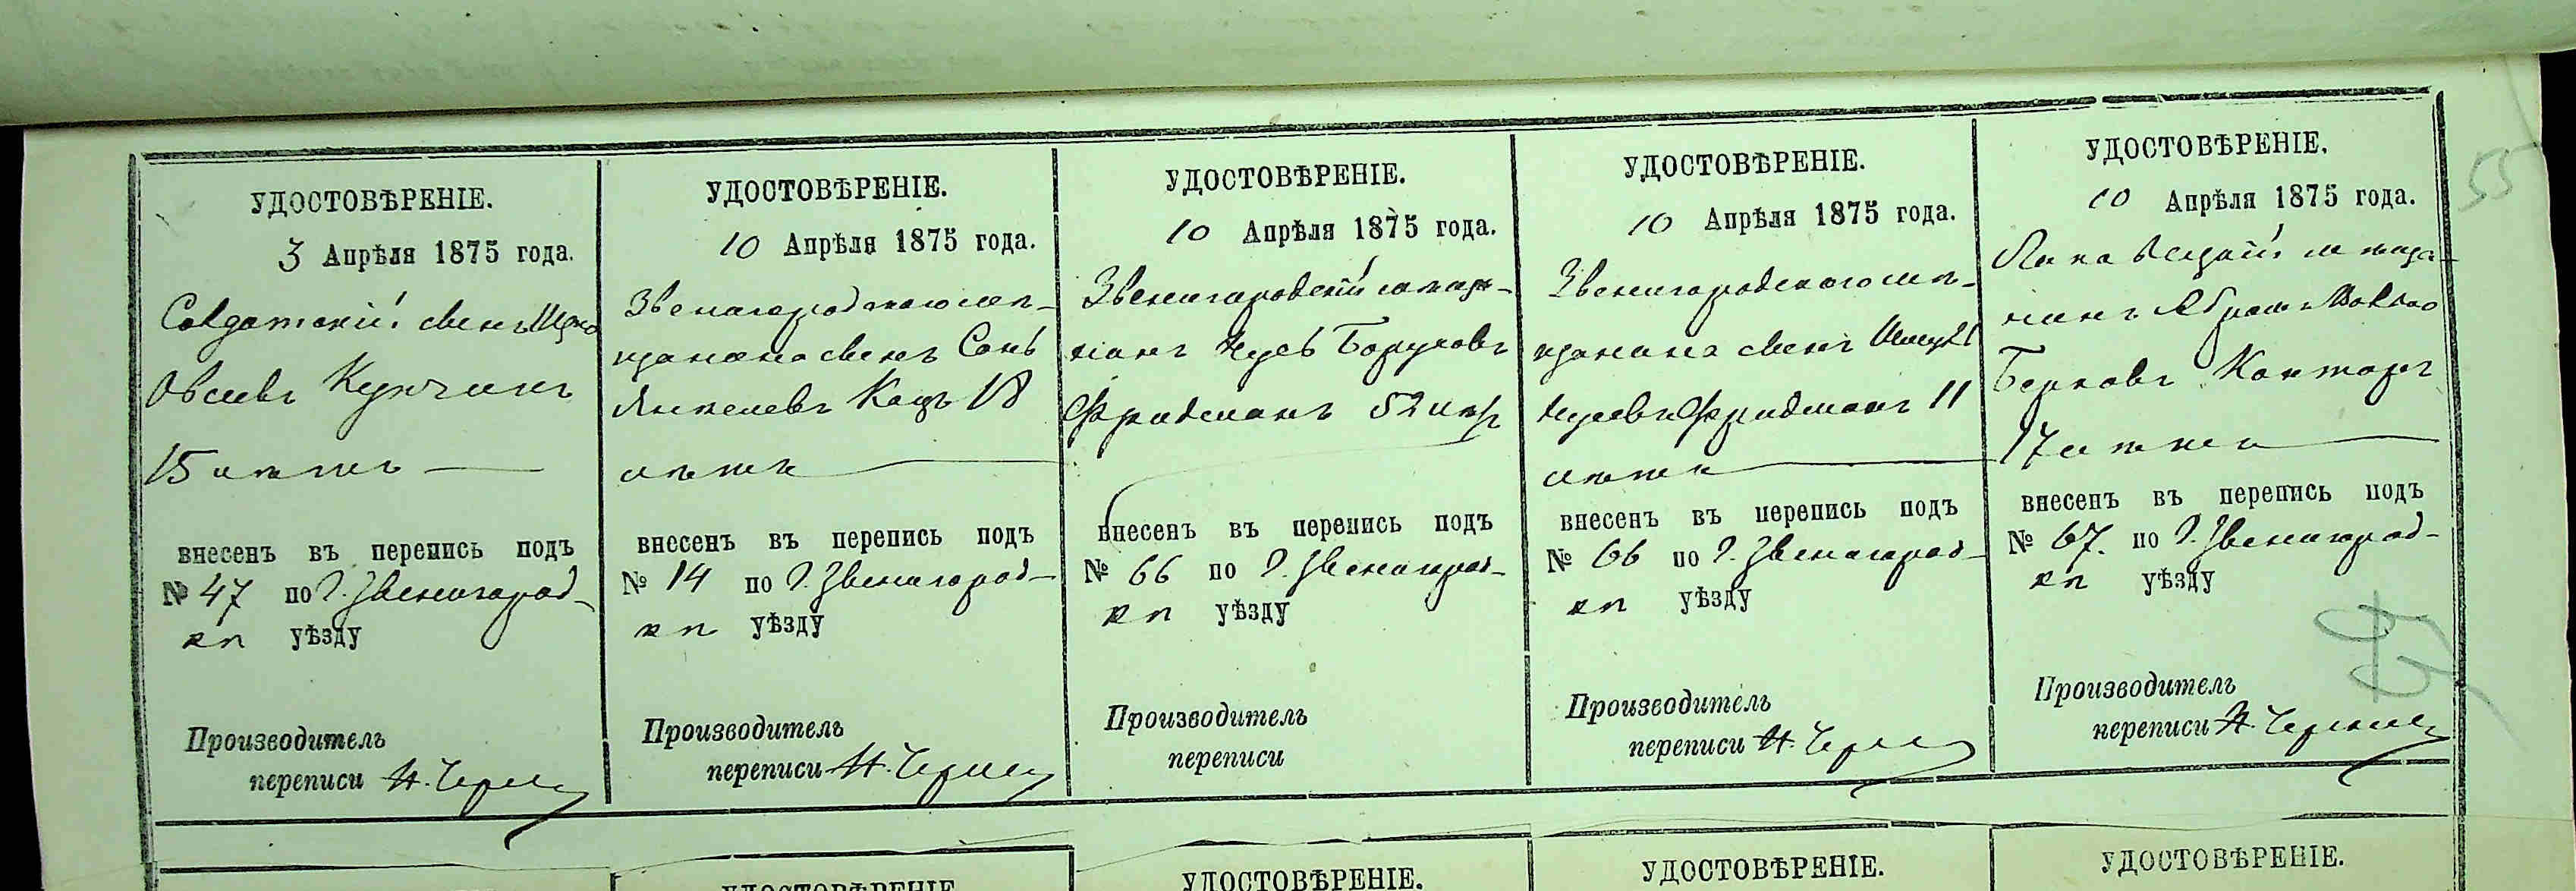 УДОСТОВѢРЕНІЕ.
3 Апрѣля 1875 года.
Солдатскій сынъ
Овсіевъ
15 лѣтъ
внесенъ въ перепись подъ
№ 47 по г. Звенигород-
кѣ уѣзду
Производитель
переписи Н.
УДОСТОВѢРЕНІЕ.
10 Апрѣля 1875 года.
Звенигородскаго мѣ-
щанина сынъ
Янкелевъ Кацъ 18
лѣтъ
внесенъ въ перепись подъ
№ 14 по г. Звенигород-
кѣ уѣзду
Производитель
переписи Н.
УДОСТОВѢРЕНІЕ.
10 Апрѣля 1875 года.
Звенигородскій мѣща-
нинъ Нусь Боруховъ
Фридманъ 52 лѣтъ
внесенъ въ перепись подъ
№ 66 по г. Звенигород-
кѣ уѣзду
Производитель
переписи
УДОСТОВѢРЕНІЕ.
10 Апрѣля 1875 года.
Звенигородскаго мѣ-
щанина сынъ
Нусевъ Фридманъ 11
лѣтъ
внесенъ въ перепись подъ
№ 66 по г. Звенигород-
кѣ уѣзду
Производитель
переписи Н.
УДОСТОВѢРЕНІЕ.
10 Апрѣля 1875 года.
мѣща-
нинъ Абрамъ
Берковъ Канторъ
17 лѣтъ
внесенъ въ перепись подъ
№ 67. по г. Звенигород-
кѣ уѣзду
Производитель
переписи Н.
55
УДОСТОВѢРЕНІЕ.
УДОСТОВѢРЕНІЕ.
УДОСТОВѢРЕНІЕ.
УДОСТОВѢРЕНІЕ.